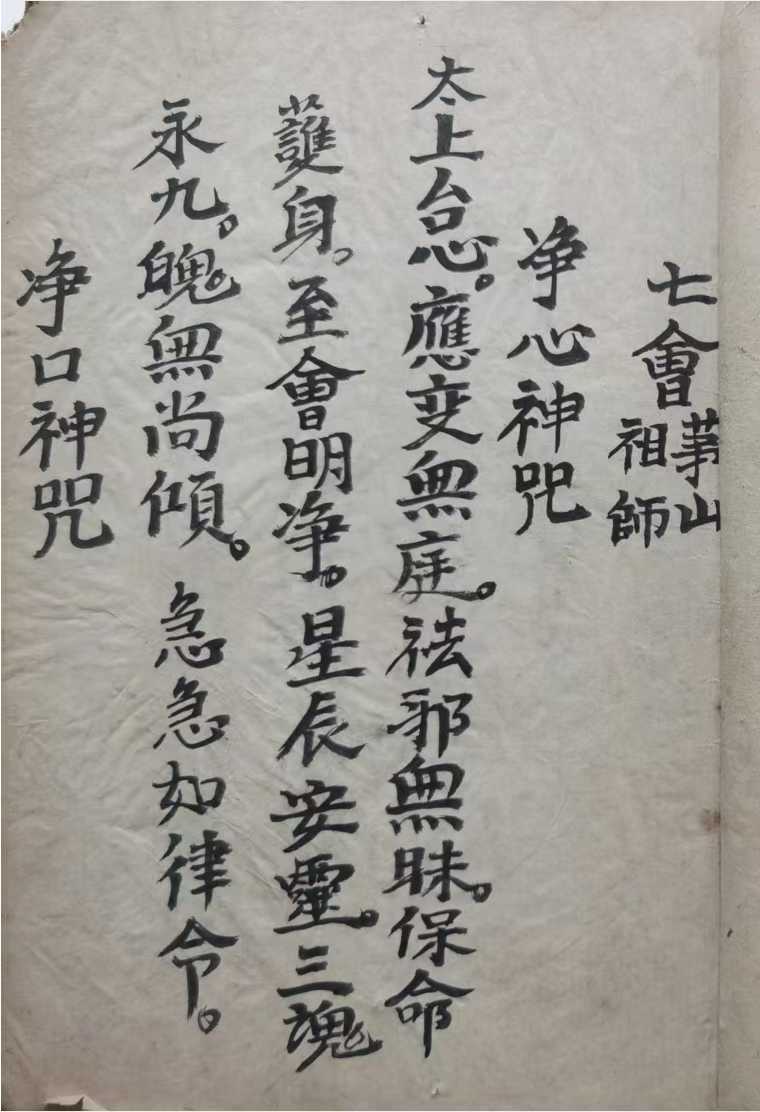 七會茅山祖師
净心神咒
太上台心。應变無庭。祛邪無昧。保命
護身。至會明净。星辰安靈。三魂
永九。魄無尚傾。急急如律令。
净口神咒